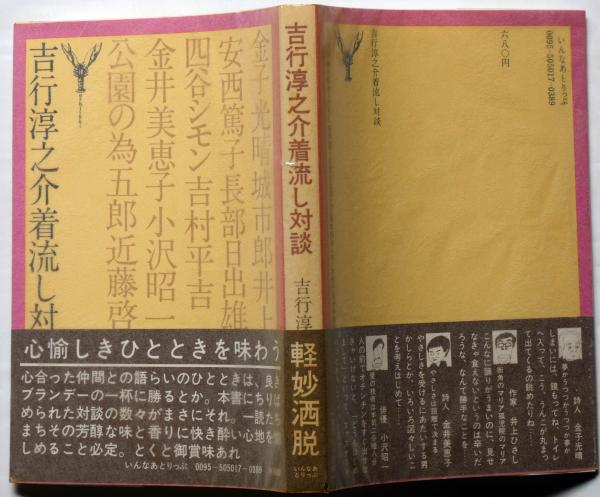 吉行淳之介着流し対
金子光晴城市郎井上
安西篤子長部日出雄
四谷シモン吉村平吉
金井美恵子小沢昭一
公園の為五郎近藤啓
心愉しきひとときを味わう
心合った仲間との語らいのひとときは、良き
ブランデーの一杯に勝るとか。本書にちりば
められた対談の数々がまさにそれ。一読たち
まちその芳醇な味と香りに快き酔い心地を愉
しめること必定。とくと御賞味あれ
いんなあとりっぷ 0095-505017-0389
吉行淳之介着流し対談
吉行淳
軽妙洒脱
いんなあとりっぷ
いんなあとりっぷ
0095-505017-0389
六八〇円
吉行淳之介着流し対談
詩人 金子光晴
夢かうつつかうつつか夢か
しまいには、鏡もってね、トイレ
へ入って、こう、うんこが丸まっ
て出てくるの眺めたりね……
作家 井上ひさし
街角のマリア孤児院のマリア
こんなに踊りがうまいのに、見せ
なきゃ食えないというのは辛いだ
ろうな、なんて勝手なことを……
詩人 金井美恵子
やさしさは距離で決まる
やさしさを受けるにあたいする男
かしらとか、いろいろ淋しいこ
とを考えはじめて……
俳優 小沢昭一